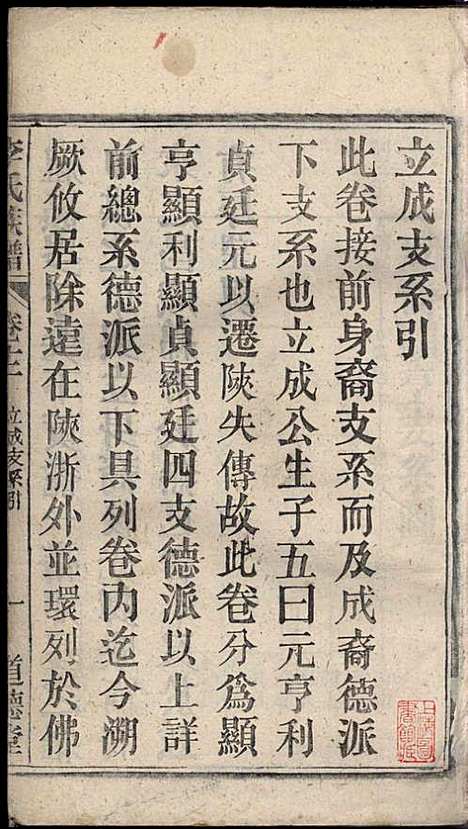 立成支系引
此卷接前身裔支系而及成裔德派
下支系也立成公生子五曰元亨利
貞廷元以遷陝失傳故此卷分爲顯
亨顯利顯貞顯廷四支德派以上詳
前總系德派以下具列卷內迄今溯
厥攸居除遠在陝浙外並環列於佛
李氏族譜 卷十二 立成支系引 一 道德堂